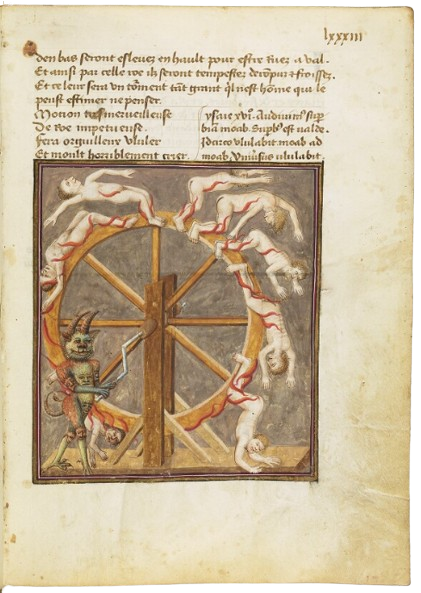 lxxxiii
den bas seront eslevez en hault pour estre ruez a val.
Et ainsi par celle roe ilz seront tempestez derompuz et froissez.
Et ce leur sera un torment tant grant quil nest home qui le
peust estimer ne penser.
Motion tresmerveilleuse
De roe impetueuse.
Fera orguilleux ululer
Et moult horriblement crier.
ysaie xvi. Audivimus supb
biā moab. Supbus est valde.
Idcirco ululabit moab ad
moab. Universus ululabit.